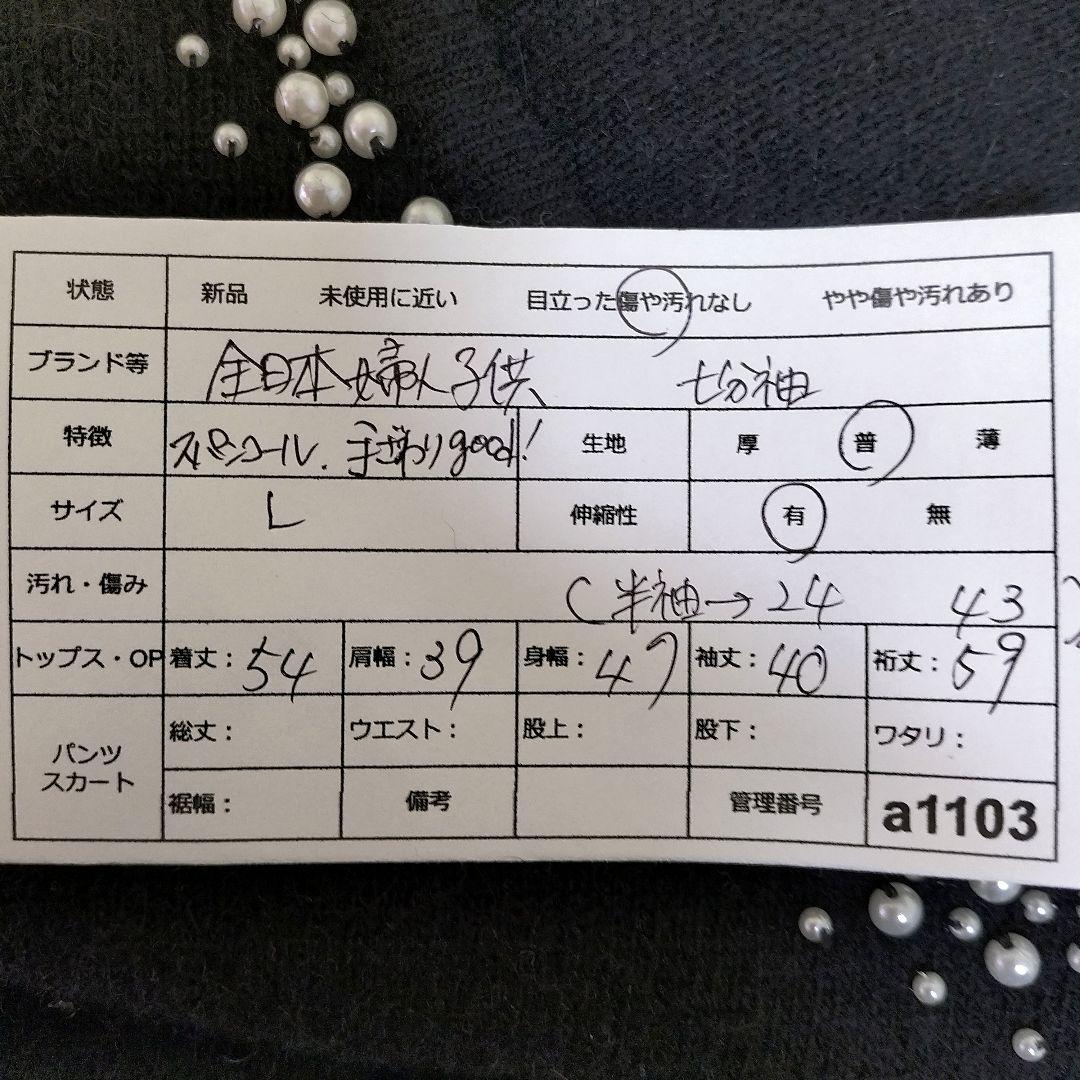 状態 新品 未使用に近い 目立った傷や汚れなし やや傷や汚れあり
ブランド等 全日本婦人子供 七分袖
特徴 スパンコール. 手ざわりgood! 生地 厚 普 薄
サイズ L 伸縮性 有 無
汚れ・傷み (半袖→24 43)
トップス・OP 着丈:54 肩幅:39 身幅:47 袖丈:40 裄丈:59
パンツ スカート 総丈: ウエスト: 股上: 股下: ワタリ:
裾幅: 備考 管理番号 a1103